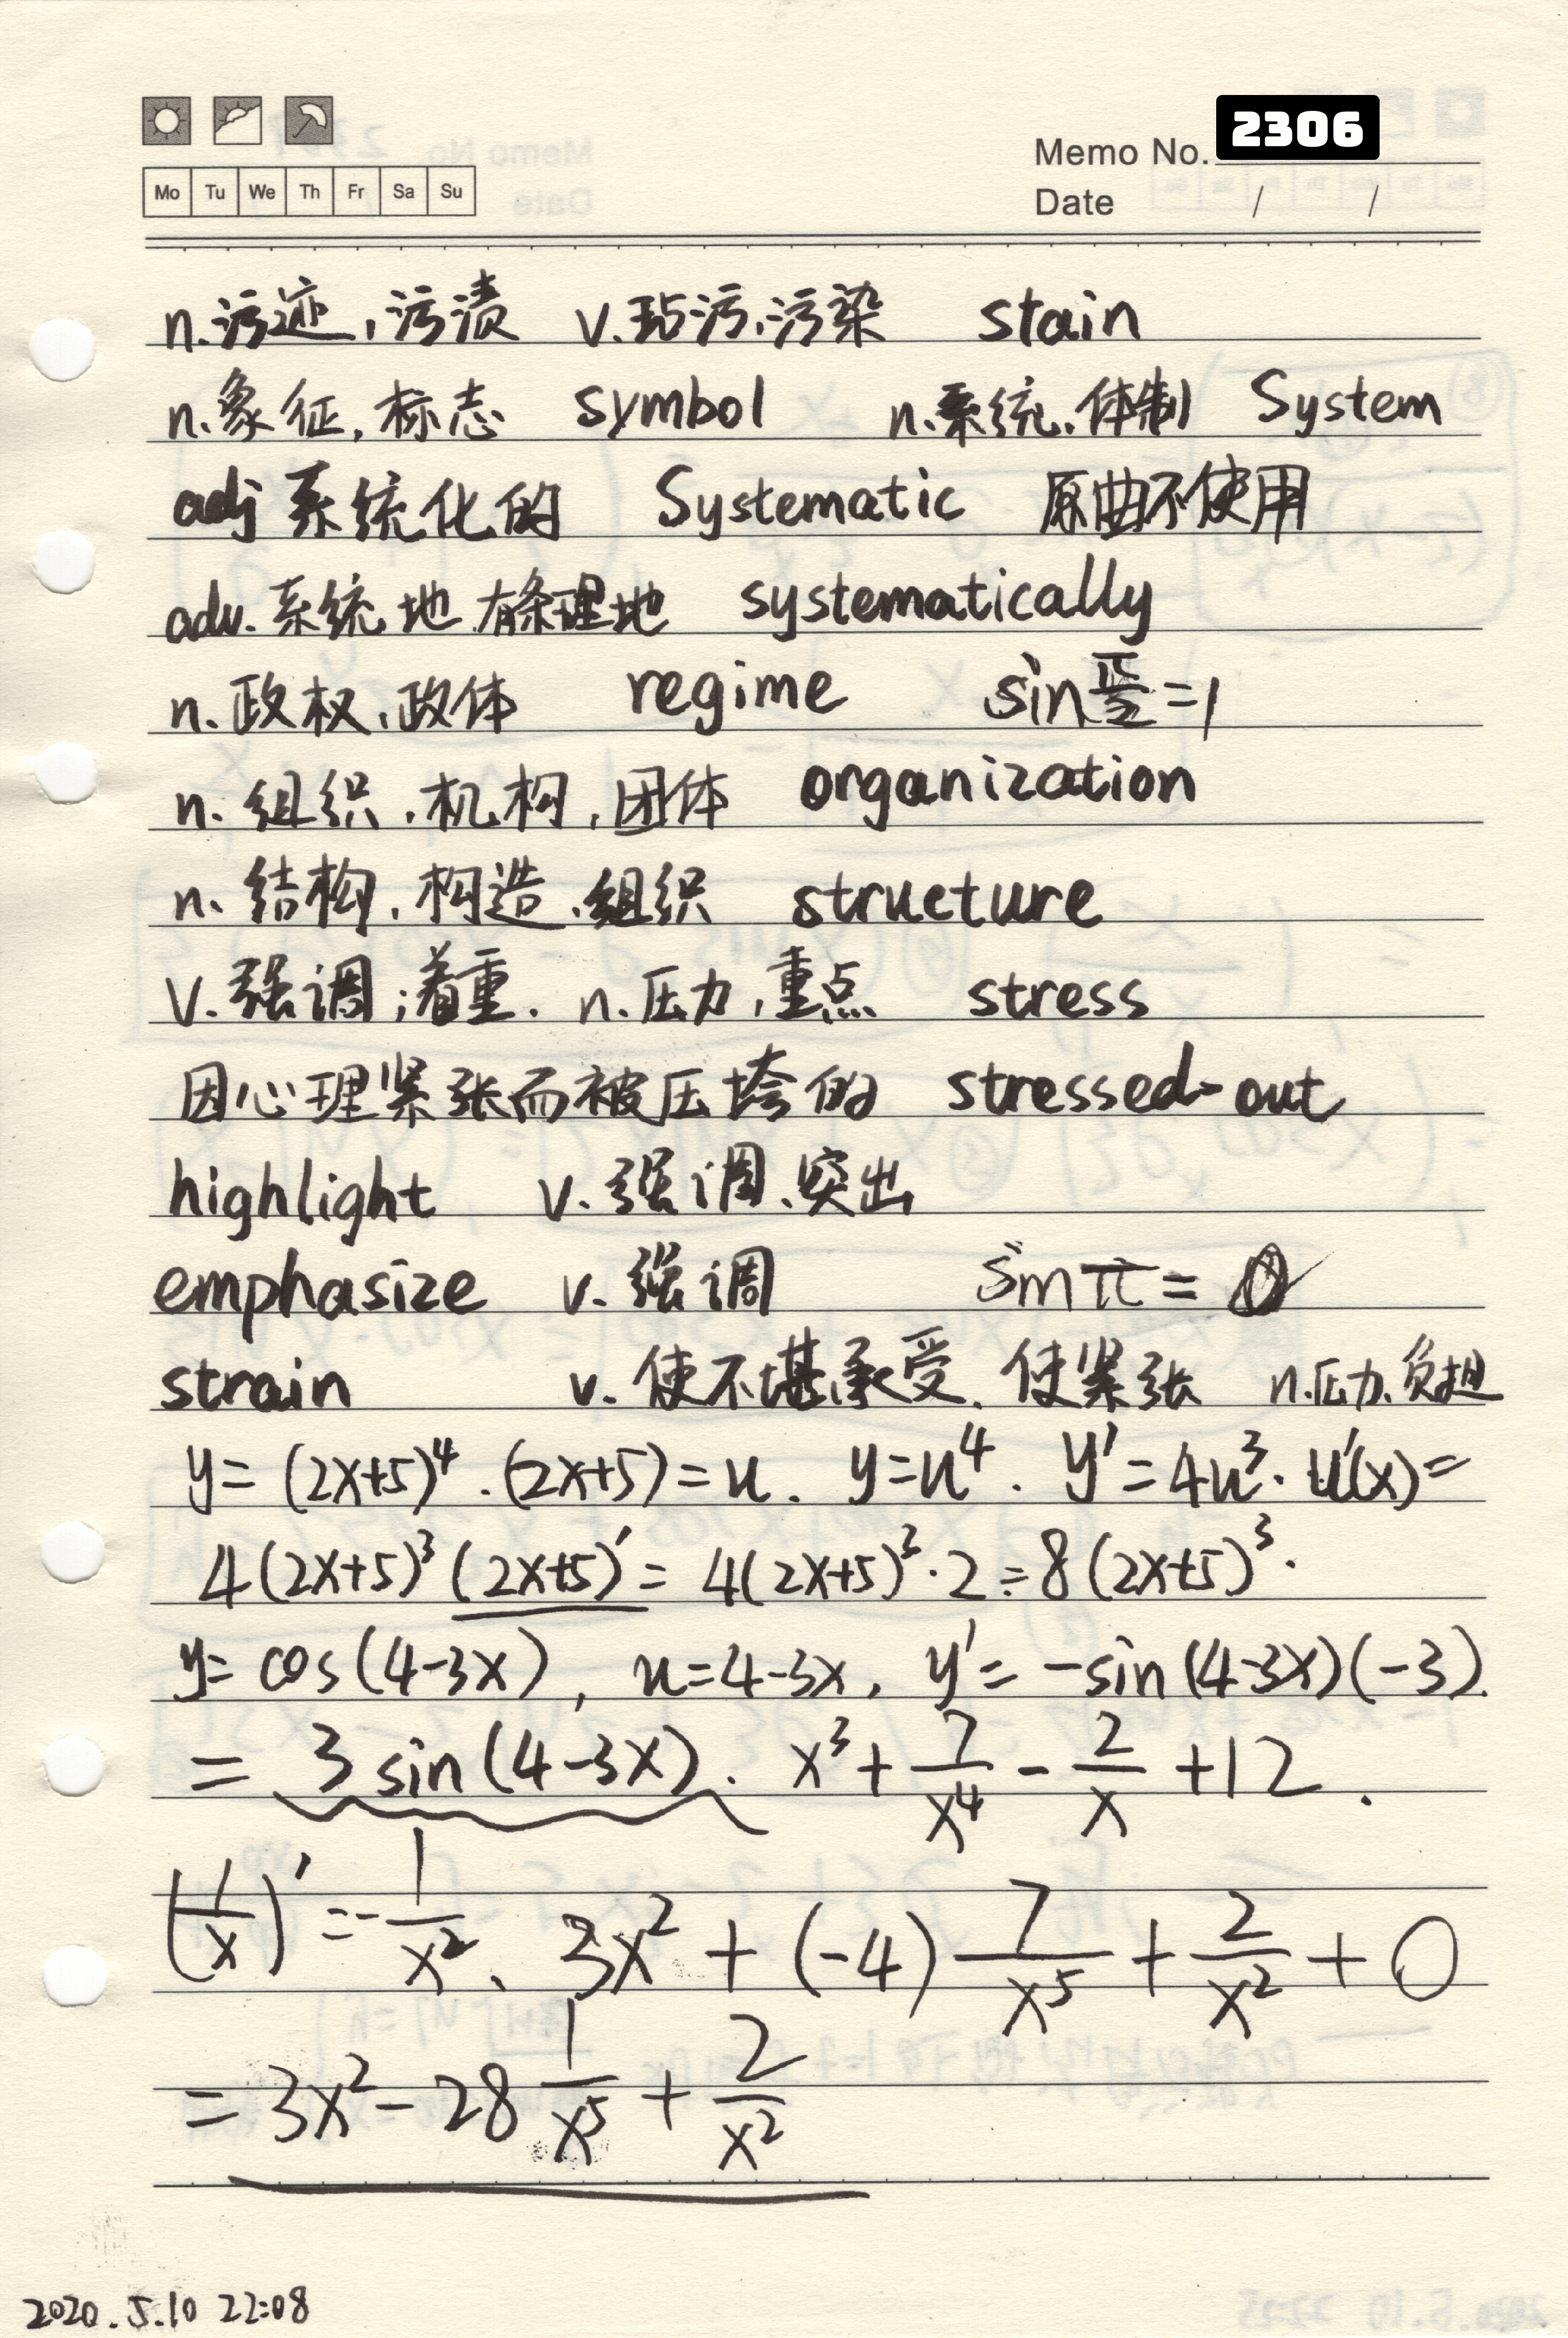 Memo No. 2306
Mo Tu We Th Fr Sa Su
Date / /
n.污迹,污渍 v.玷污.污染 stain
n.象征,标志 symbol n.系统.体制 System
adj 系统化的 Systematic 原曲不使用
adv.系统地.有条理地 systematically
n.政权、政体 regime sin π/2 =1
n.组织,机构,团体 organization
n.结构,构造.组织 structure
V.强调;着重. n.压力,重点 stress
因心理紧张而被压垮的 stressed-out
highlight v.强调、突出
emphasize v.强调 sinπ= 0
strain v.使不堪承受、使紧张 n.压力.负担
y=(2x+5)⁴.(2x+5)=u. y=u⁴. y'=4u³·u'(x)=
4(2x+5)³(2x+5)'=4(2x+5)³·2=8(2x+5)³.
y=cos(4-3x), u=4-3x, y'=-sin(4-3x)(-3).
=3sin(4-3x). x³+7/x⁴-2/x+12.
(1/x)'=-1/x². 3x²+(-4)7/x⁵+2/x²+0
=3x²-28 1/x⁵+2/x²
2020.5.10 22:08